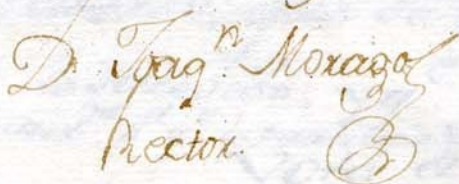 D. Joaqn. Moragas
Rector.